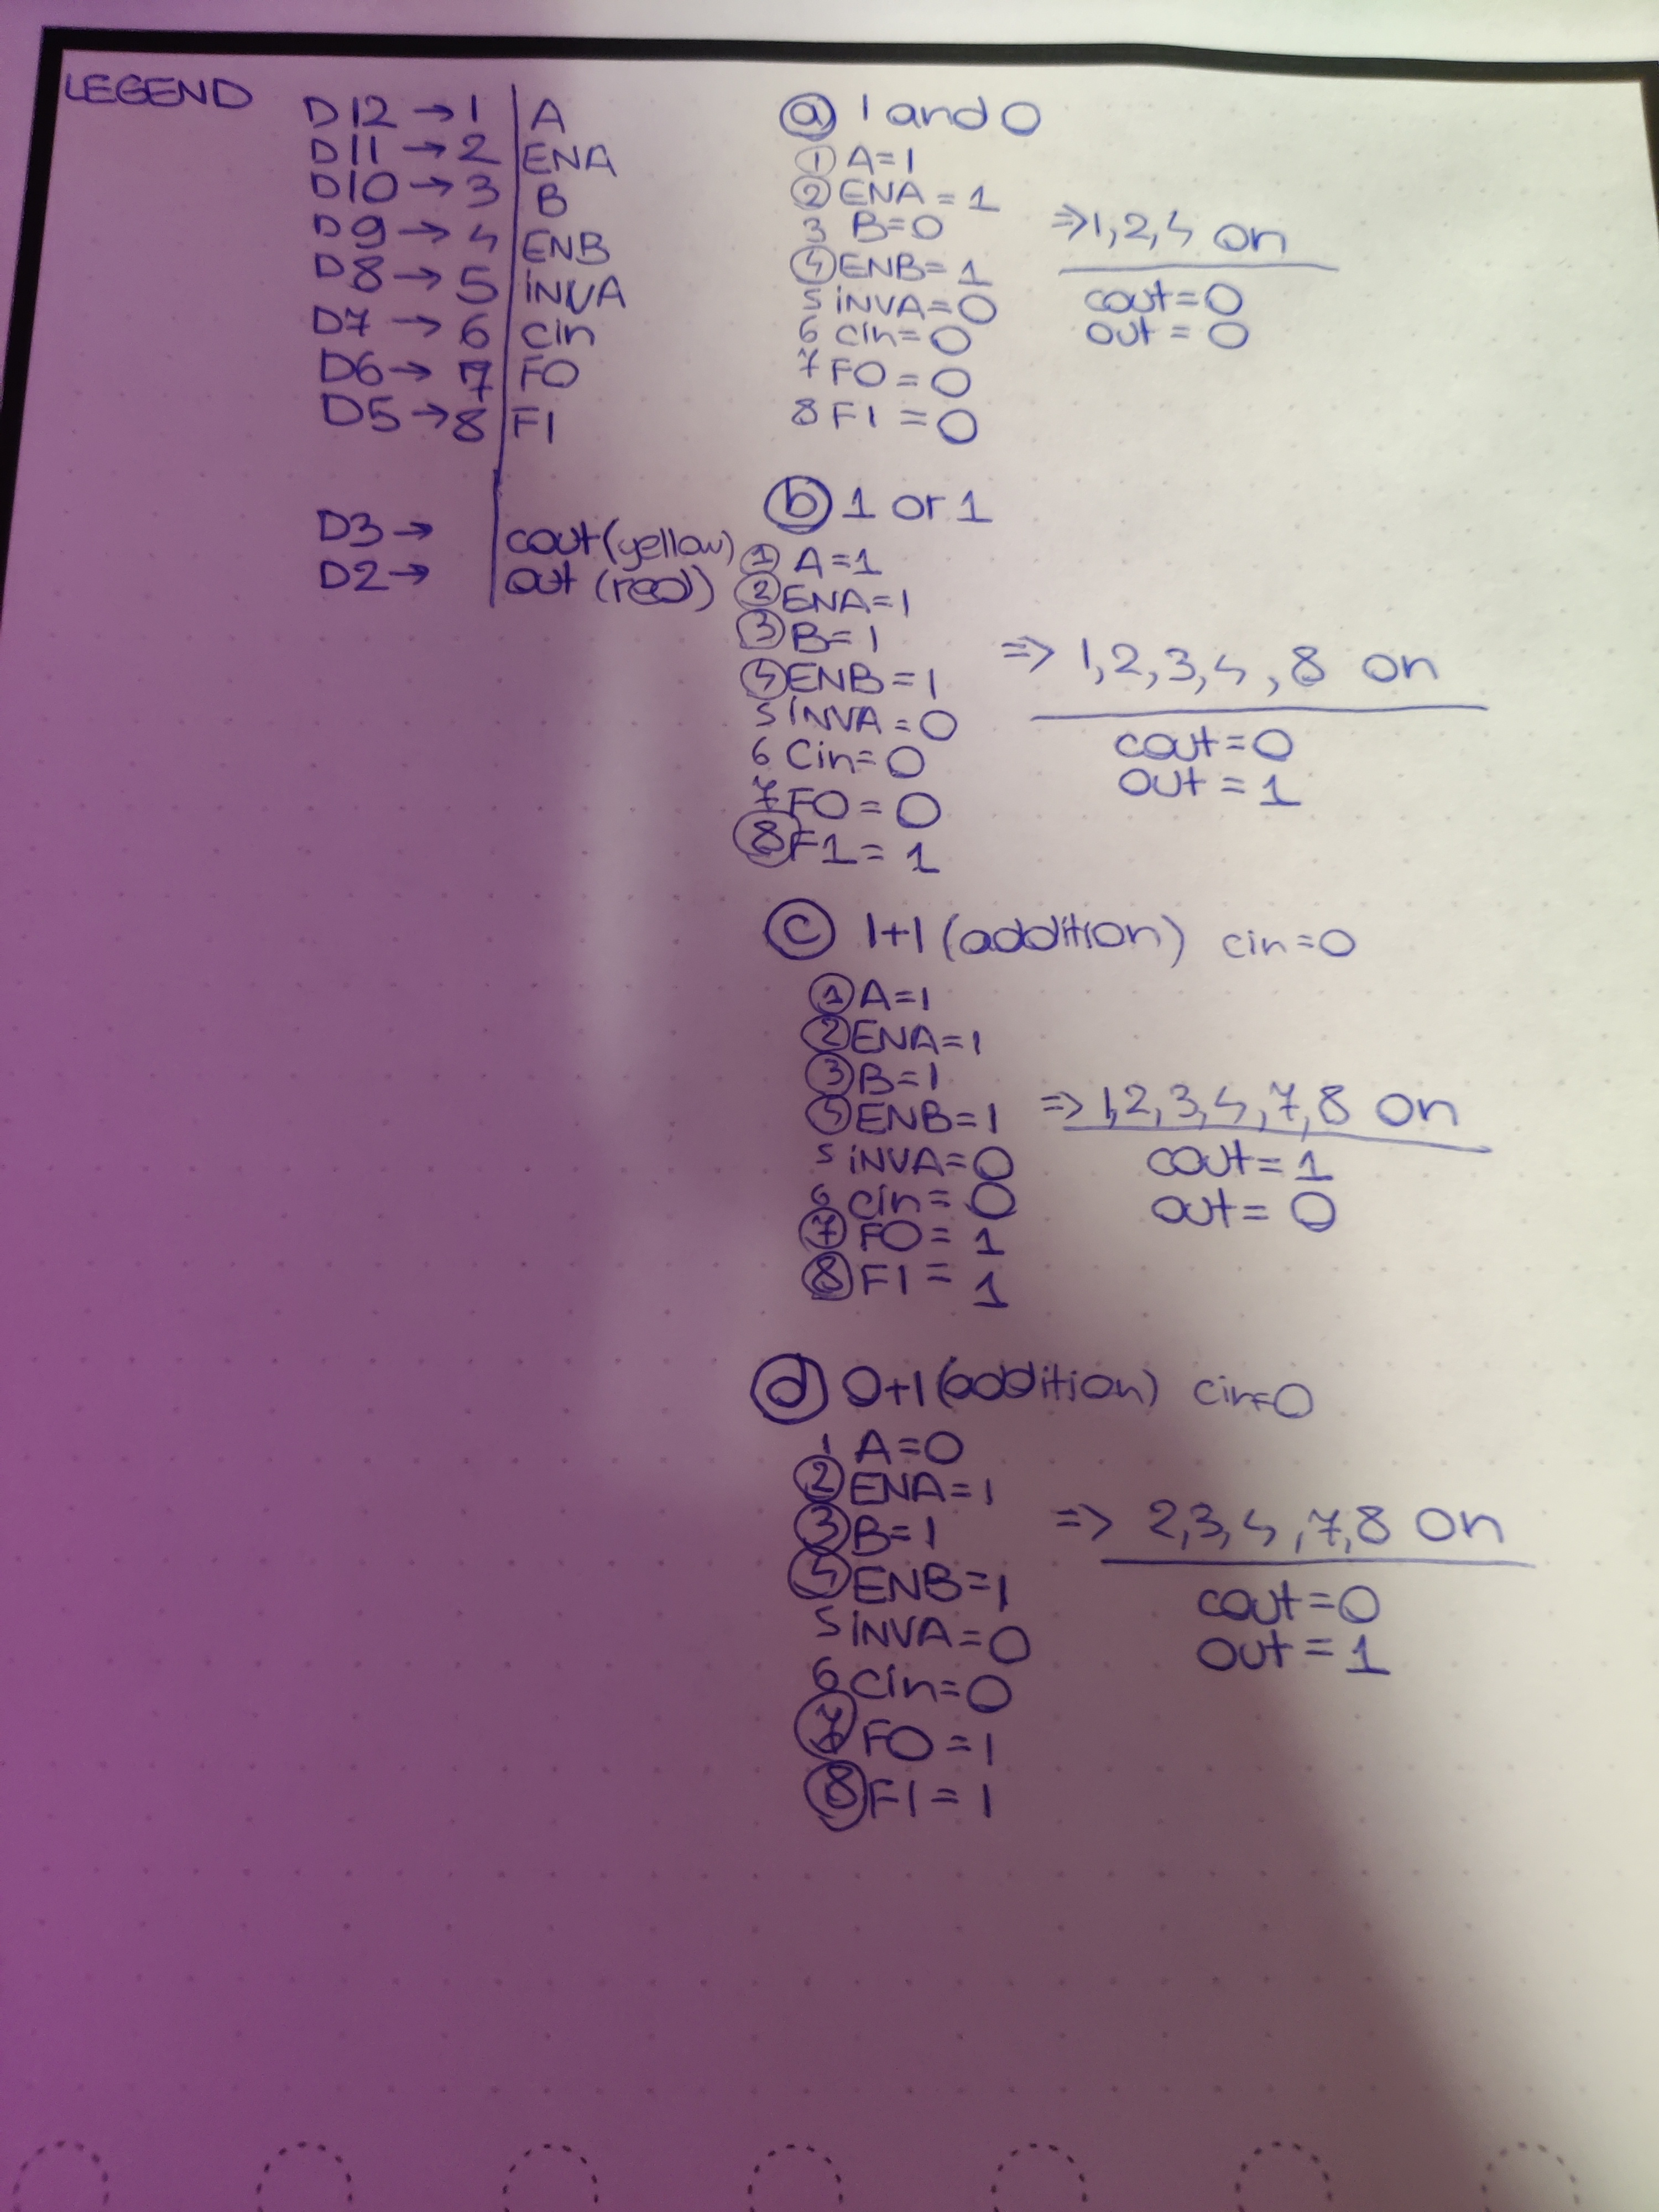 LEGEND
D12 → 1 A
D11 → 2 ENA
D10 → 3 B
D9 → 4 ENB
D8 → 5 İNVA
D7 → 6 cin
D6 → 7 F0
D5 → 8 F1
D3 → cout (yellow)
D2 → out (red)
a 1 and 0
1 A=1
2 ENA=1
3 B=0
4 ENB=1
5 İNVA=0
6 cin=0
7 F0=0
8 F1=0
⇒ 1,2,4 on
cout=0
out=0
b 1 or 1
1 A=1
2 ENA=1
3 B=1
4 ENB=1
5 İNVA=0
6 Cin=0
7 F0=0
8 F1=1
⇒ 1,2,3,4,8 on
cout=0
out=1
c 1+1 (addition) cin=0
1 A=1
2 ENA=1
3 B=1
4 ENB=1
5 İNVA=0
6 cin=0
7 F0=1
8 F1=1
⇒ 1,2,3,4,7,8 on
cout=1
out=0
d 0+1 (addition) cin=0
1 A=0
2 ENA=1
3 B=1
4 ENB=1
5 İNVA=0
6 cin=0
7 F0=1
8 F1=1
⇒ 2,3,4,7,8 on
cout=0
out=1